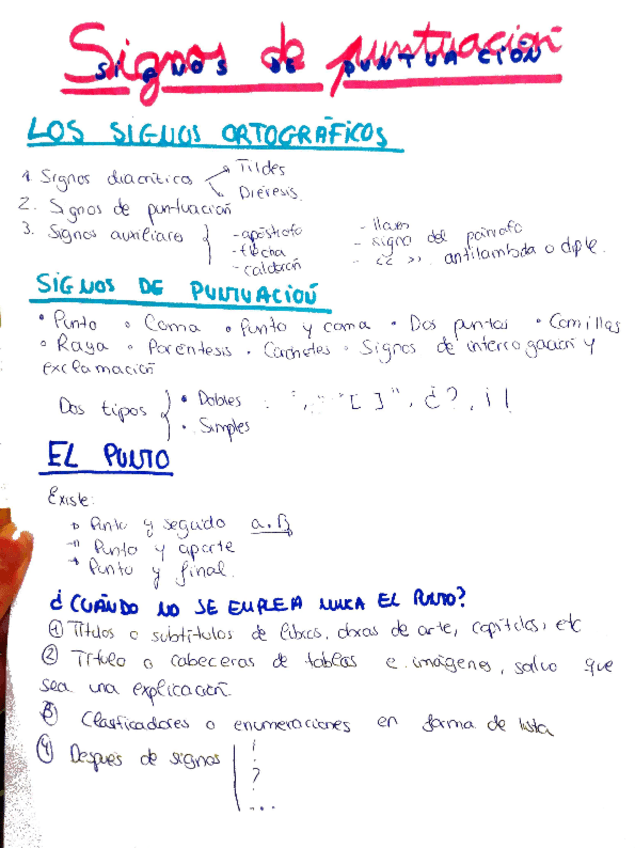 Signos de puntuación
SIGNOS DE PUNTUACIÓN
LOS SIGNOS ORTOGRÁFICOS
1. Signos diacríticos
Tildes
Diéresis.
2. Signos de puntuación
3. Signos auxiliares
- apóstrofo
- flecha
- calderón
- llaves
- signo del párrafo
- << >> antilambda o diple.
SIGNOS DE PUNTUACIÓN
• Punto • Coma • Punto y coma • Dos puntos • Comillas
• Raya • Paréntesis • Corchetes • Signos de interrogación y
exclamación
Dos tipos
• Dobles : [ ] ", ¿?, ¡!
• Simples
EL PUNTO
Existe:
Punto y seguido a. B
Punto y aparte
Punto y final.
¿CUÁNDO NO SE EMPLEA NUNCA EL PUNTO?
① Títulos o subtítulos de libros, obras de arte, capítulos, etc
② Título o cabeceras de tablas e imágenes, salvo que
sea una explicación.
③ Clasificadores o enumeraciones en forma de lista
④ Después de signos
!
?
...